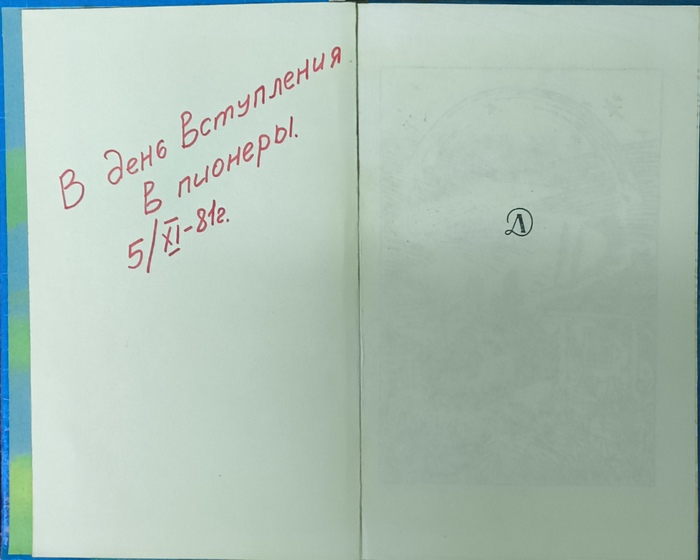 В день вступления
в пионеры.
5/XI-81г.
Д